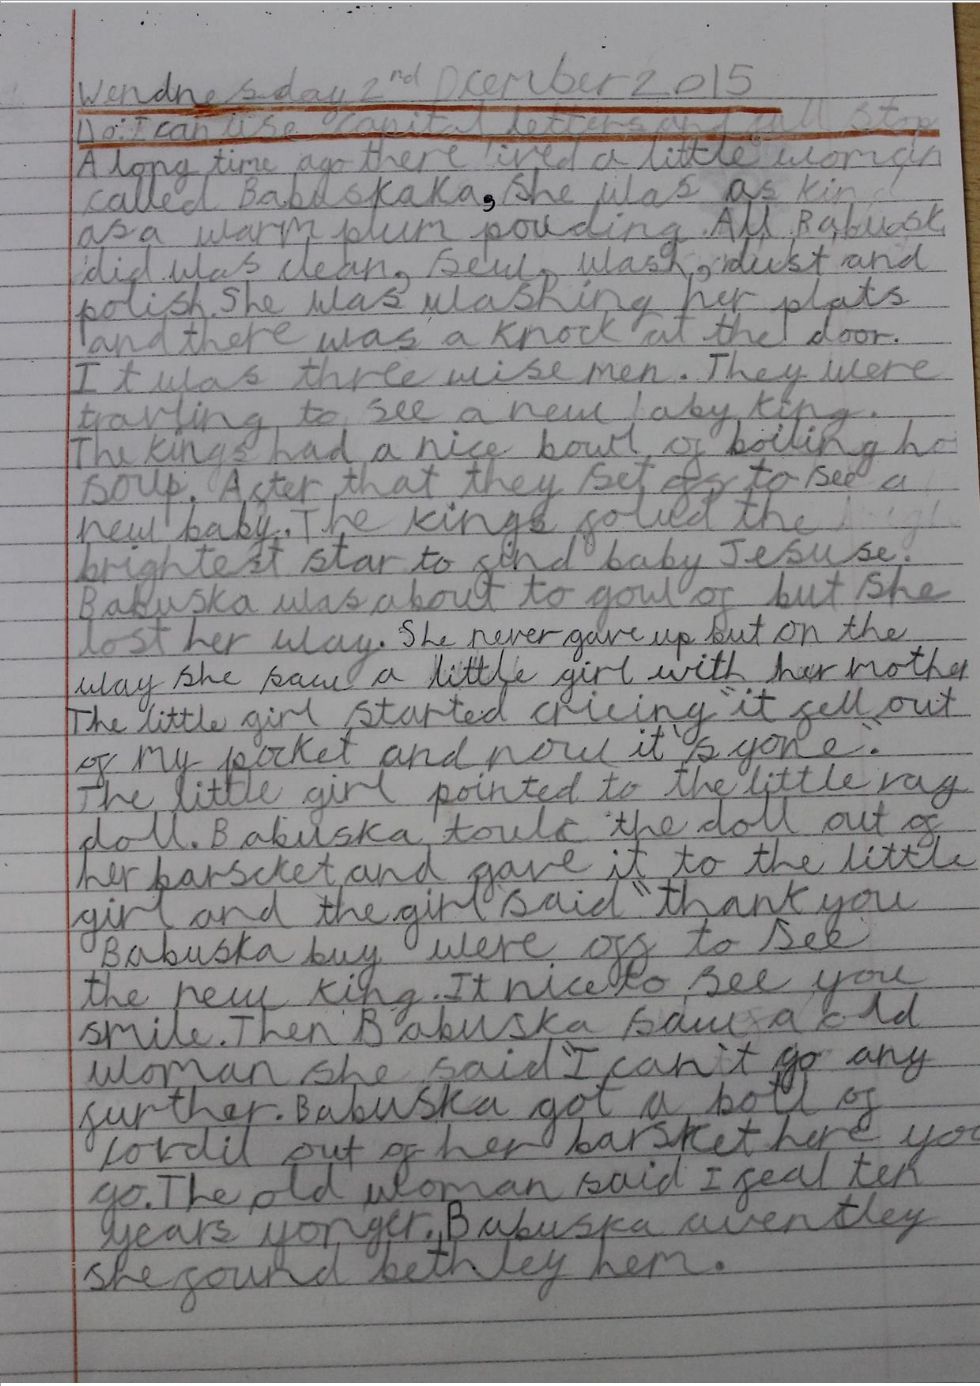 Wendnesday 2nd Dcember 2015
I can use capital letters and full stop
A long time ago there lived a little woman
called Babuskaka, she was as kin
as a warm plum pouding. All Babusk
did was clean, sew, wash, dust and
polish. She was washing her plats
and there was a knock at the door.
It was three wise men. They were
travling to see a new baby king.
The kings had a nice bowl of boiling ho
soup. After that they set off to see a
new baby. The kings folwed the
brightest star to find baby Jesuse.
Babuska was about to gowl of but she
lost her way. She never gave up but on the
way she saw a little girl with her mother
The little girl started cricing "it fell out
of my pocket and now it's gone".
The little girl pointed to the little rag
doll. Babuska toulc the doll out of
her barscket and gave it to the little
girl and the girl said "thank you
Babuska buy were off to see
the new king. It nice to see you
smile. Then Babuska saw a old
woman she said "I can't go any
further. Babuska got a botl of
cordil out of her barsket here you
go. The old woman said I feal ten
years yonger. Babuska aventley
she found bethley hem.